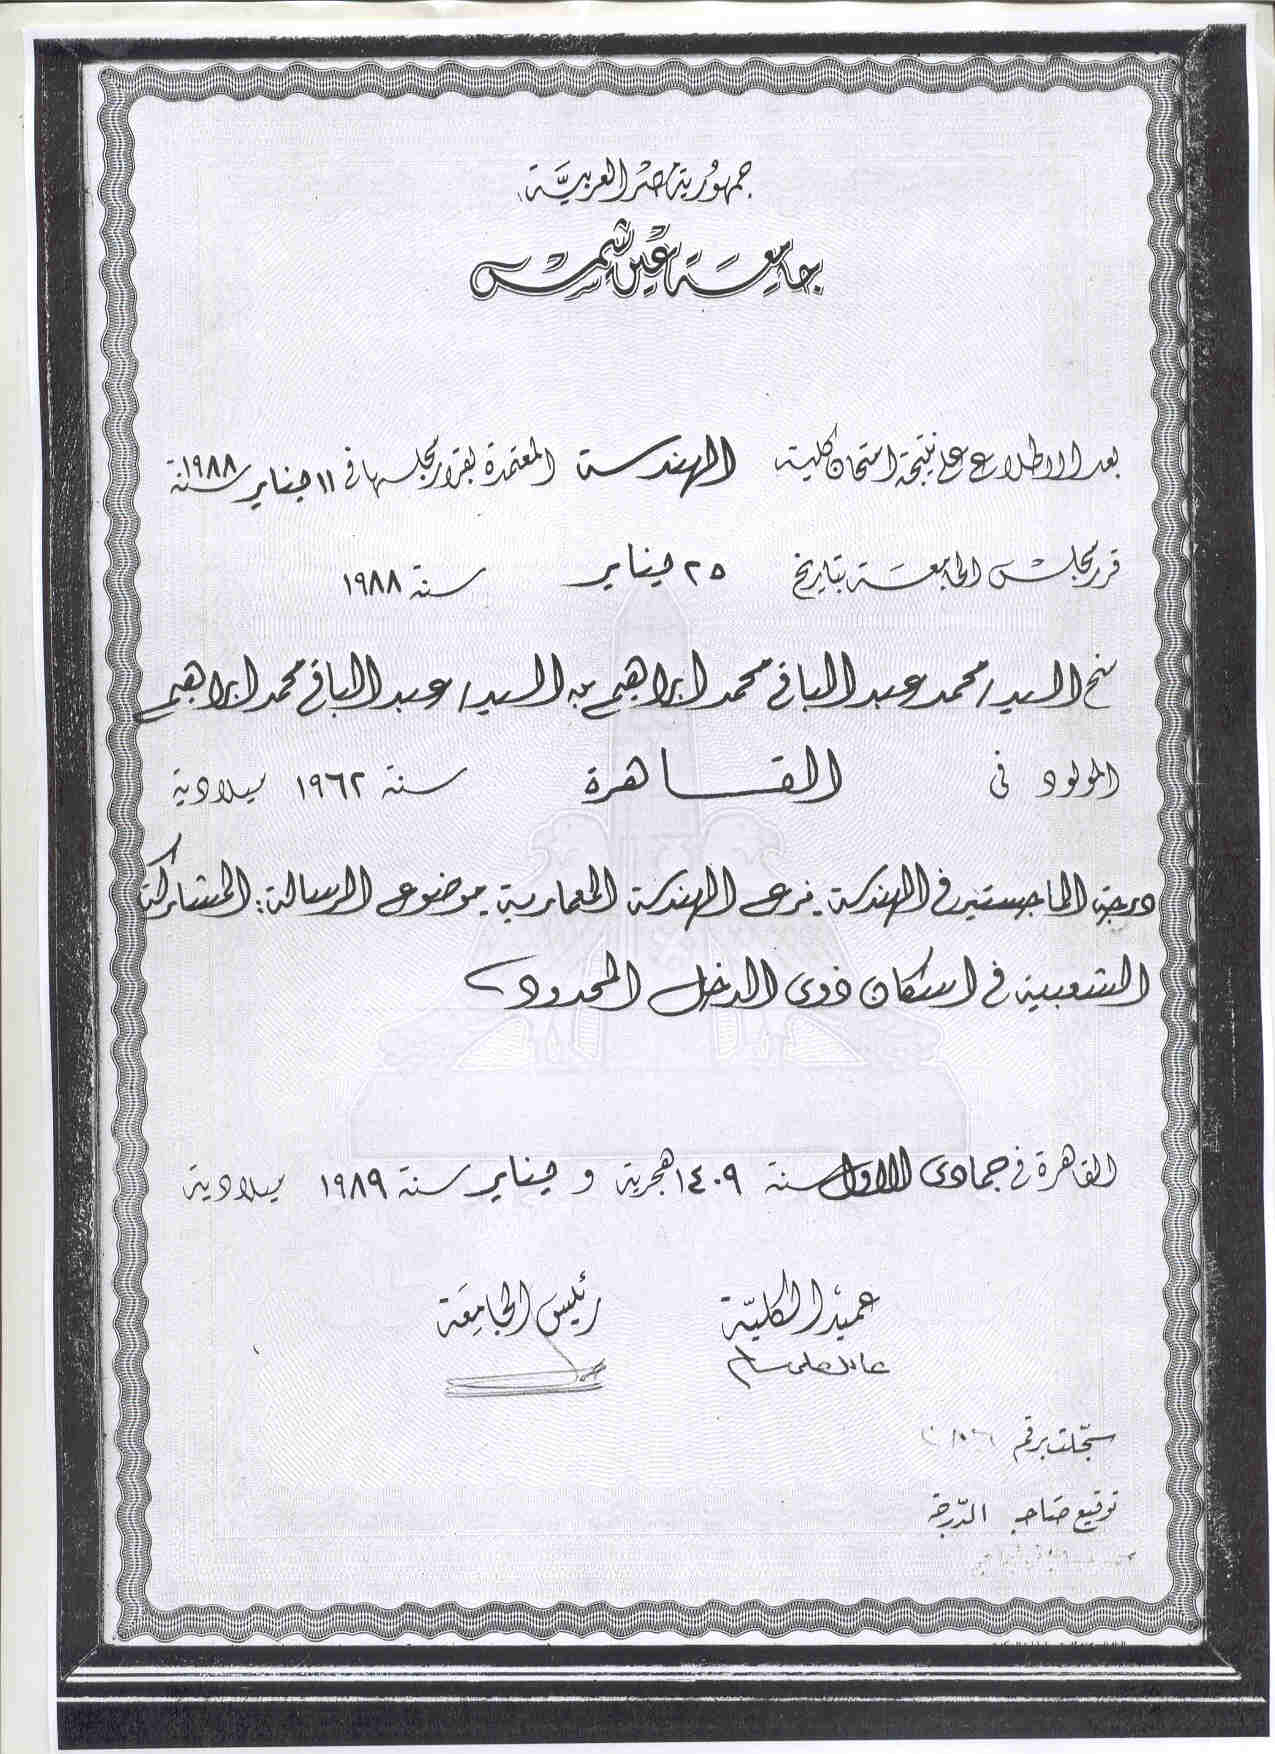 جمهورية مصر العربية
جامعة عين شمس
بعد الاطلاع على نتيجة امتحان كلية الهندسة المعتمدة بقرار مجلسها في ١١ يناير سنة ١٩٨٨
قرر مجلس الجامعة بتاريخ ٢٥ يناير سنة ١٩٨٨
منح السيد/ محمد عبد الباقي محمد ابراهيم بن السيد/ عبد الباقي محمد ابراهيم
المولود في القاهرة سنة ١٩٦٢ ميلادية
درجة الماجستير في الهندسة - فرع الهندسة المعمارية - موضوع الرسالة: المشاركة
الشعبية في اسكان ذوى الدخل المحدود
القاهرة في جمادى الاول سنة ١٤٠٩ هجرية و يناير سنة ١٩٨٩ ميلادية
عميد الكلية رئيس الجامعة
سجلت برقم
توقيع صاحب الدرجة